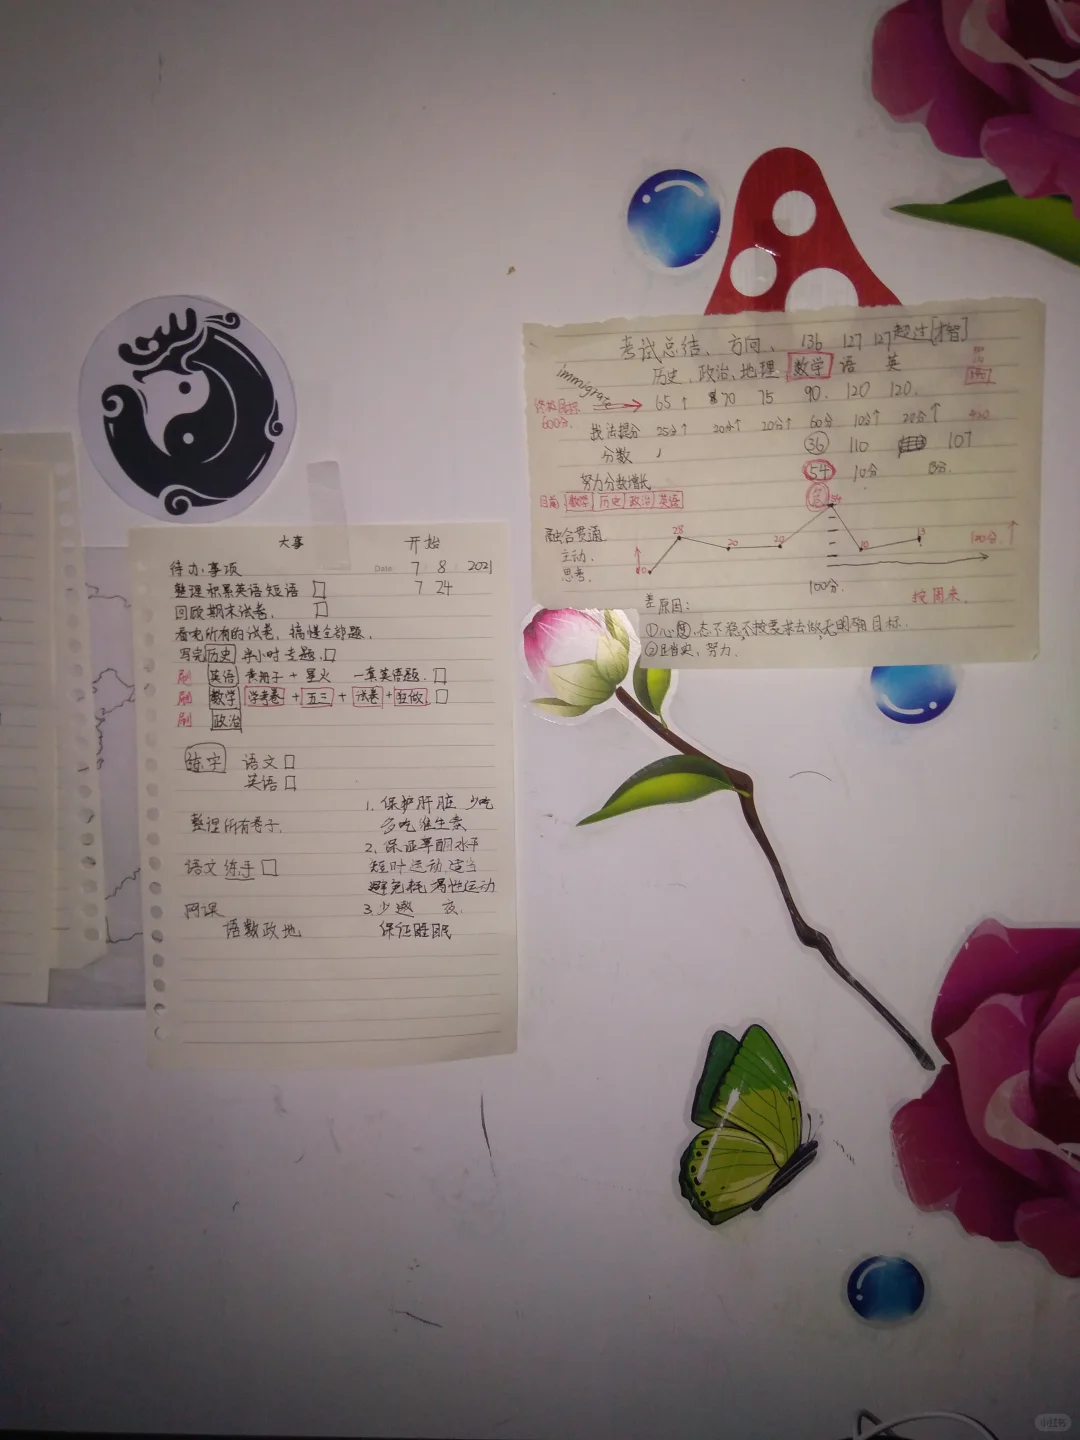 大事 开始
待办事项 Date 7 8 2021
整理积累英语短语 □ 7 24
回顾期末试卷. □
看完所有的试卷, 搞懂全部题.
写完历史 半小时专题. □
刷 英语 黄册子 + 星火 一套英语题. □
刷 数学 学考卷 + 五三 + 试卷 + 狂做 □
刷 政治
练字 语文 □
英语 □
整理所有卷子.
语文 练手 □
网课
语数政地
1. 保护肝脏 少吃
多吃维生素
2. 保证睾酮水平
短时运动,适当
避免耗竭性运动
3. 少熬 夜.
保证睡眠
考试总结、方向、 136 127 127 超过[才智]
历史、政治、地理 数学 语 英
immigrate
终极目标 65↑ 70 75 90. 120 120.
600分.
找法提分 25分↑ 20分↑ 20分↑ 60分 10分↑ 20分↑ 420
分数 36 110 107
努力分数增长 54 10分 13分.
目前: 数学 历史 政治 英语
融会贯通
主动.
思考.
28 20 20 54 10
100分.
120分.↑
按周来.
差原因:
①心态不稳,不按要求去做,无明确目标.
②且肯定,努力.
小红书